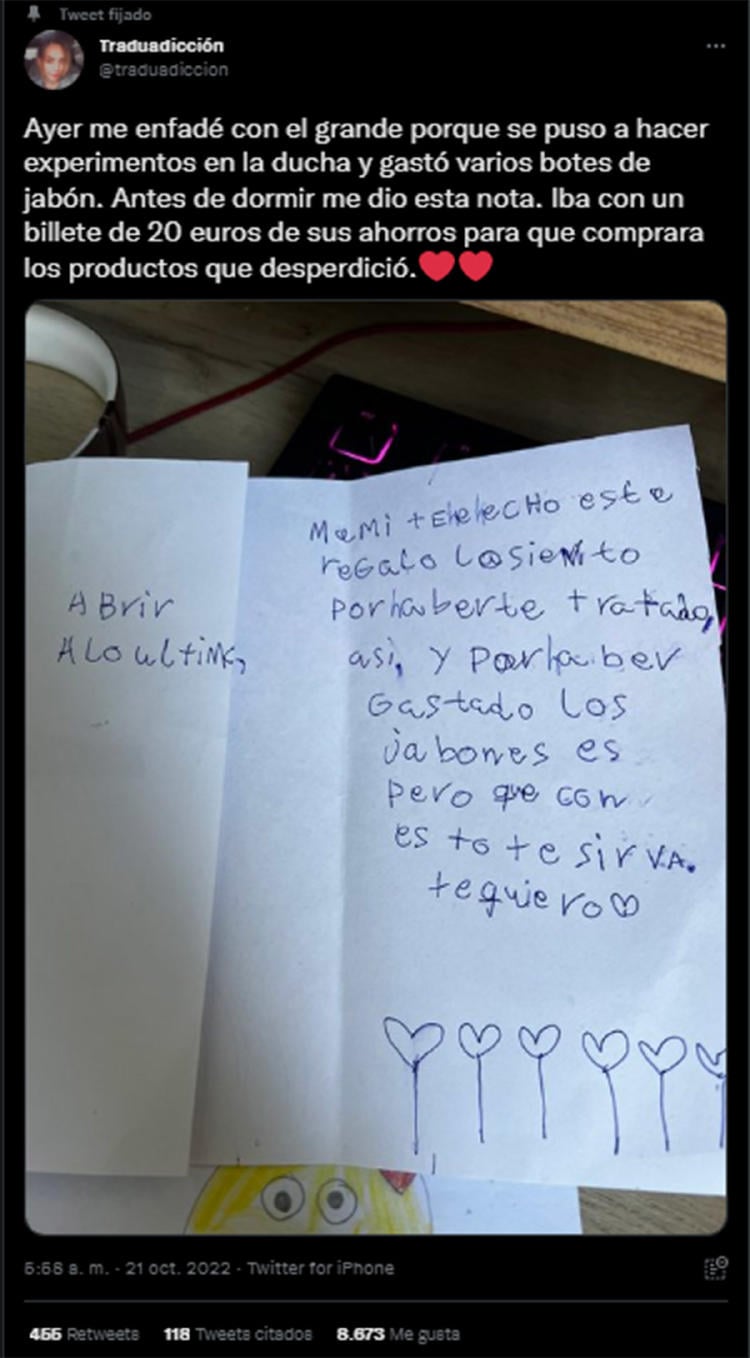 Tweet fijado
Traduadicción
@traduadiccion
Ayer me enfadé con el grande porque se puso a hacer
experimentos en la ducha y gastó varios botes de
jabón. Antes de dormir me dio esta nota. Iba con un
billete de 20 euros de sus ahorros para que comprara
los productos que desperdició.❤️❤️
ABrir
ALO ultimo
MaMi tEheheCHo este
reGaLo Losiento
Porhaberte tratado,
asi, y Porhaber
Gastado Los
jabones es
pero que con
es to te sirVA.
tequiero♡
5:58 a. m. · 21 oct. 2022 · Twitter for iPhone
455 Retweets 118 Tweets citados 8.673 Me gusta